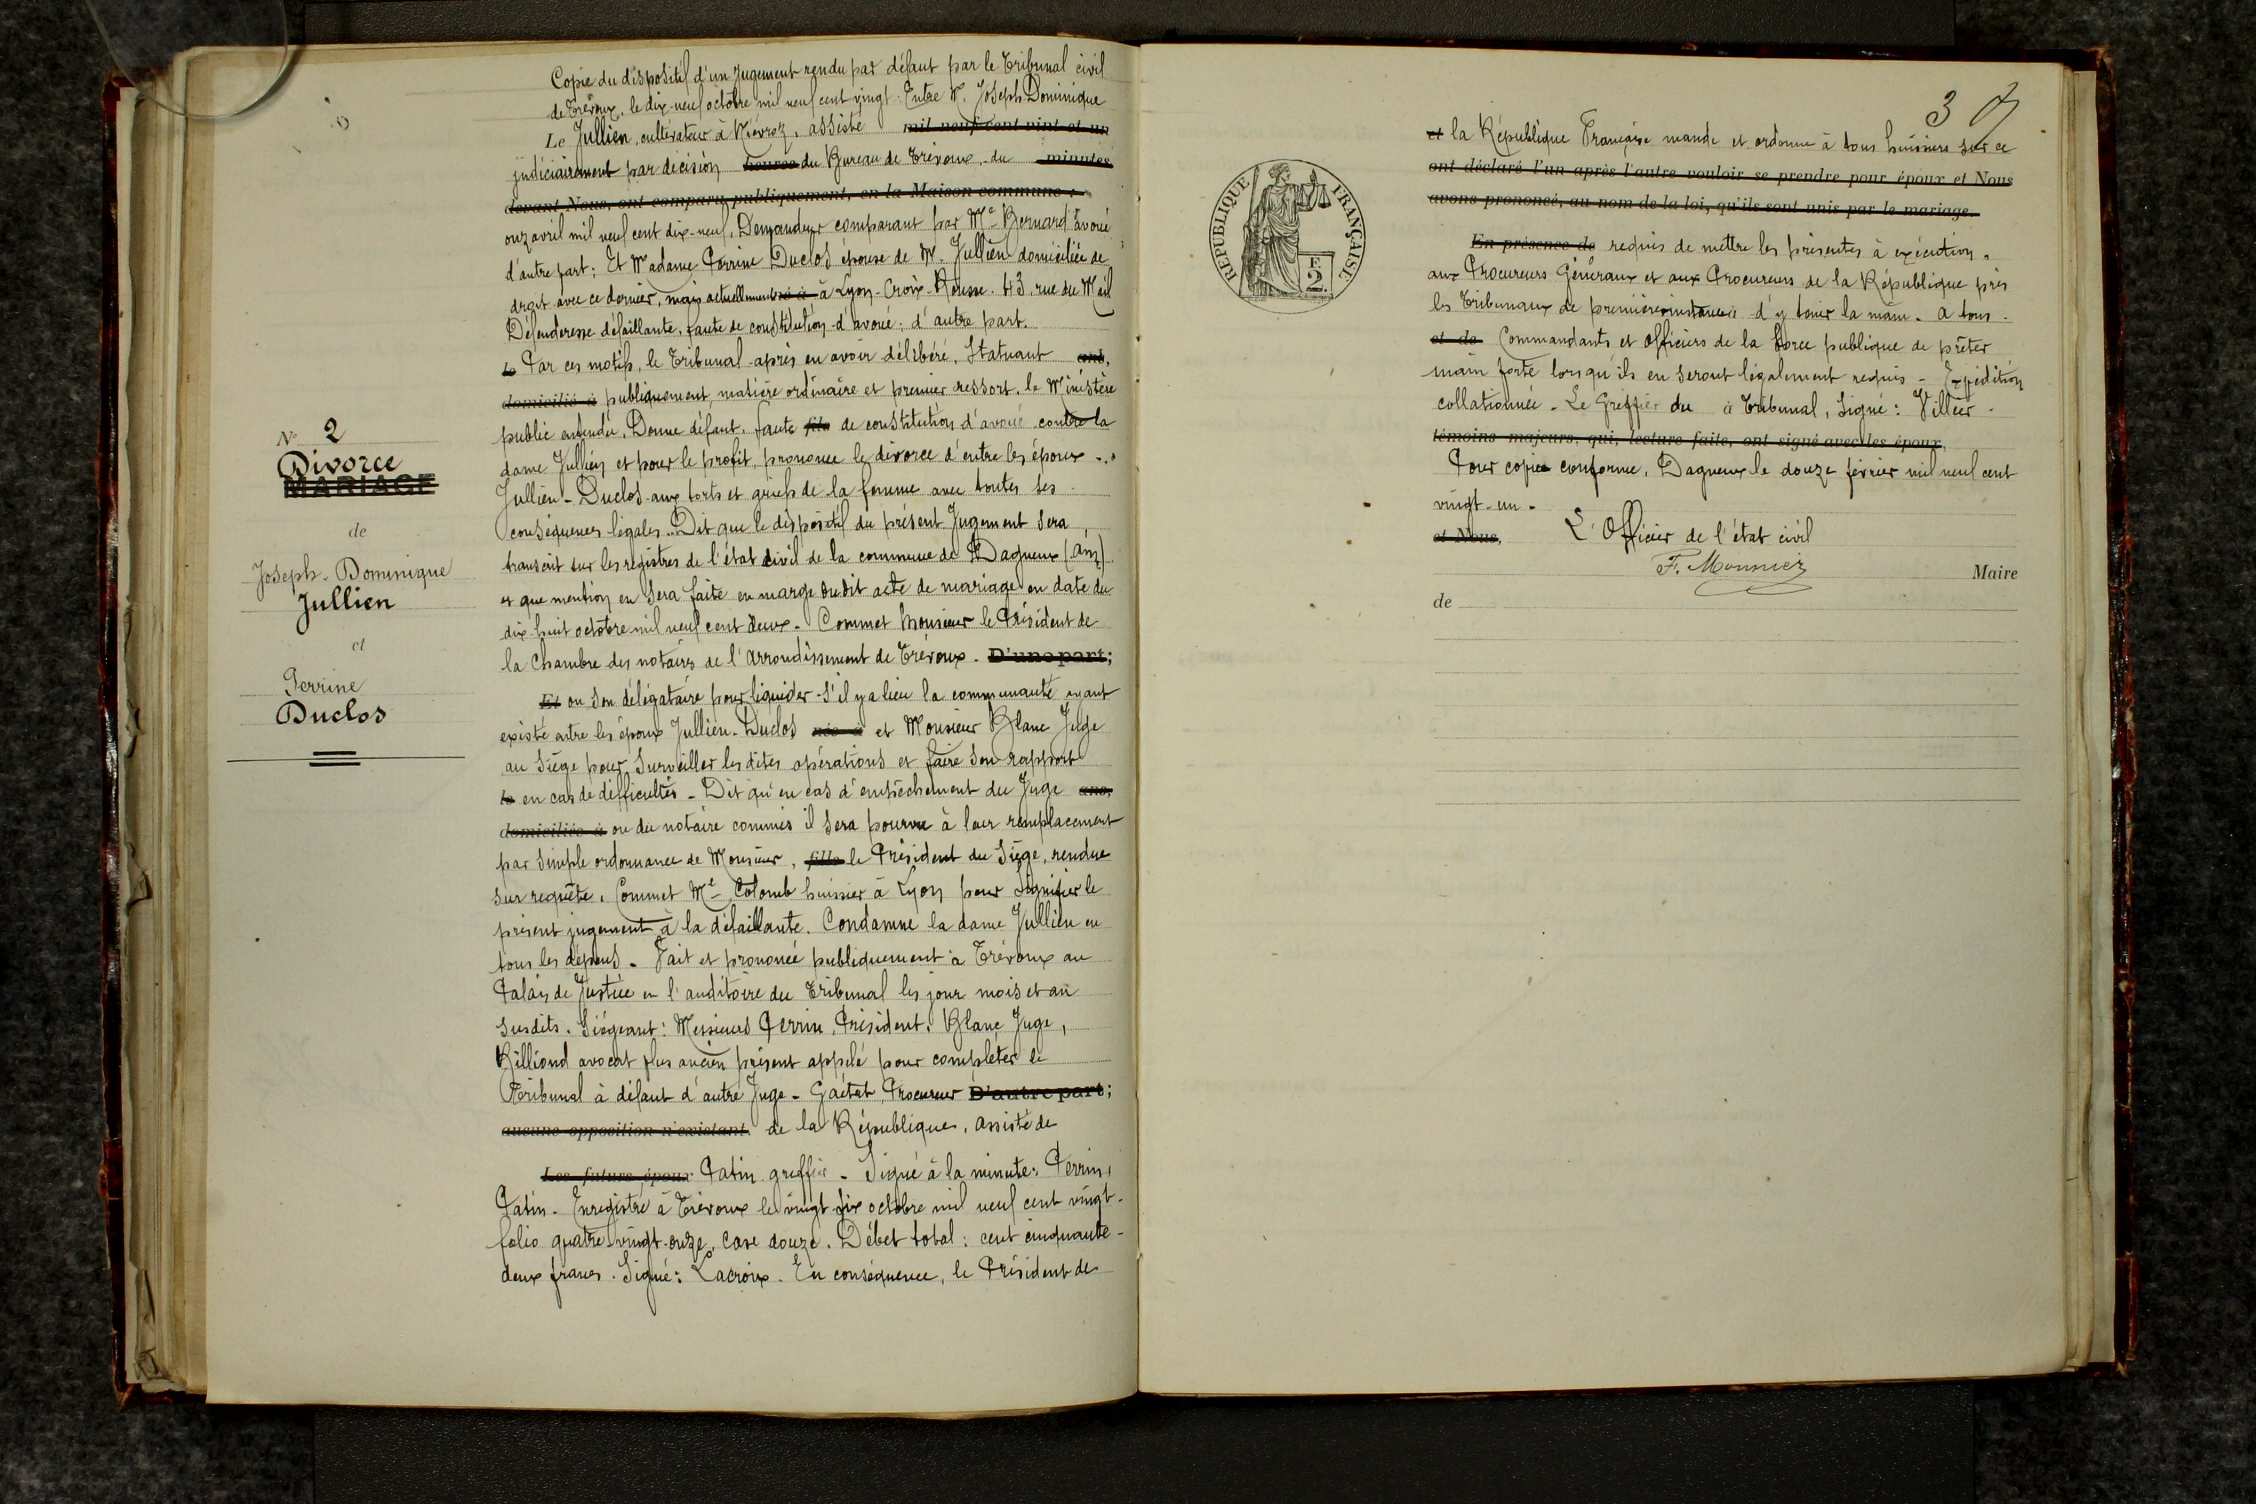 Copie du dispositif d'un Jugement rendu par défaut par le Tribunal civil
de Trévoux, le dix-neuf octobre mil neuf cent vingt. Entre M. Joseph Dominique
Le Jullien, cultivateur à Niévroz, assisté mil neuf cent vint et un
judiciairement par décision heures du Bureau de Trévoux, du minutes
devant Nous, ont comparu publiquement, en la Maison commune :
onz avril mil neuf cent dix-neuf, Demandeur comparant par Me Bernard avoué
d'autre part; Et Madame Perrine Duclos épouse de M. Jullien domiciliée de
droit avec ce dernier, mais actuellement né à à Lyon-Croix-Rousse. 43, rue du Mail
Défenderesse défaillante, faute de constitution d'avoué; d'autre part.
le Par ces motifs, le Tribunal après en avoir délibéré, Statuant ans,
domicilié à publiquement, matière ordinaire et premier ressort. le Ministère
public entendu, Donne défaut, faute fils de constitution d'avoué contre la
dame Jullien et pour le profit, prononce le divorce d'entre les époux
Jullien-Duclos aux torts et griefs de la femme avec toutes ses
conséquences légales. Dit que le dispositif du présent Jugement sera
transcrit sur les registres de l'état civil de la commune de Dagneux (Ain)
et que mention en sera faite en marge dudit acte de mariage en date du
dix huit octobre mil neuf cent deux. Commet Monsieur le Président de
la Chambre des notaires de l'Arrondissement de Trévoux. D'une part;
Et ou son délégataire pour liquider s'il y a lieu la communauté ayant
existé entre les époux Jullien-Duclos née à et Monsieur Blanc Juge
au Siège pour Surveiller les dites opérations et faire son rapport
le en cas de difficultés - Dit qu'en cas d'empêchement du Juge ans,
domiciliée à ou du notaire commis il sera pourvu à leur remplacement
par simple ordonnance de Monsieur, fille le Président du Siège, rendue
sur requête. Commet Me Colomb huissier à Lyon pour signifier le
présent jugement à la défaillante. Condamne la dame Jullien en
tous les dépens. Fait et prononcé publiquement à Trévoux au
Palais de Justice en l'auditoire du Tribunal les jour mois et an
susdits. Siégeant: Messieurs Perrin, Président, Blanc Juge,
Billiond avocat plus ancien présent appelé pour compléter le
Tribunal à défaut d'autre Juge - Gaétat, Procureur D'autre part;
aucune opposition n'existant. de la République, assisté de
Les futurs époux Patin greffier - Signé à la minute: Perrin,
Patin - Enregistré à Trévoux le vingt six octobre mil neuf cent vingt-
folio quatre vingt-onze, case douze. Débet total: cent cinquante-
deux francs. Signé: Lacroix. En conséquence, le Président de
No 2
Divorce
MARIAGE
de
Joseph-Dominique
Jullien
et
Perrine
Duclos
3
et la République Française mande et ordonne à tous huissiers sur ce
ont déclaré l'un après l'autre vouloir se prendre pour époux et Nous
avons prononcé, au nom de la loi, qu'ils sont unis par le mariage.
En présence de requis de mettre les présentes à exécution,
aux Procureurs Généraux et aux Procureurs de la République près
les Tribunaux de première instance d'y tenir la main. A tous
et de Commandants et Officiers de la force publique de prêter
main forte lorsqu'ils en seront légalement requis - Expédition
collationnée - Le Greffier du à Tribunal, Signé: Villier.
témoins majeurs, qui, lecture faite, ont signé avec les époux,
Pour copie conforme, Dagneux le douze février mil neuf cent
vingt-un.
et Nous, L'Officier de l'état civil
F. Monnier
Maire
de
RÉPUBLIQUE FRANÇAISE
F.
2.